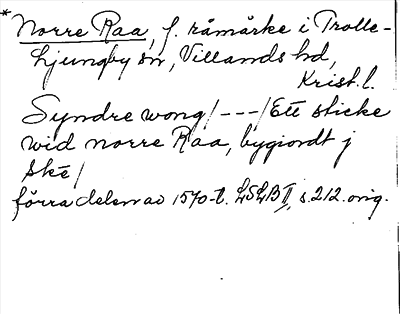 * Norre Raa, f. råmårke i Trolle-
Ljungby sn, Villands hd,
Krist. l.
Syndre wong/---/Ett sticke
wid norre Raa, bygiordt j
ske/
förra delen av 1570-t. LSLB II, s. 212. orig.